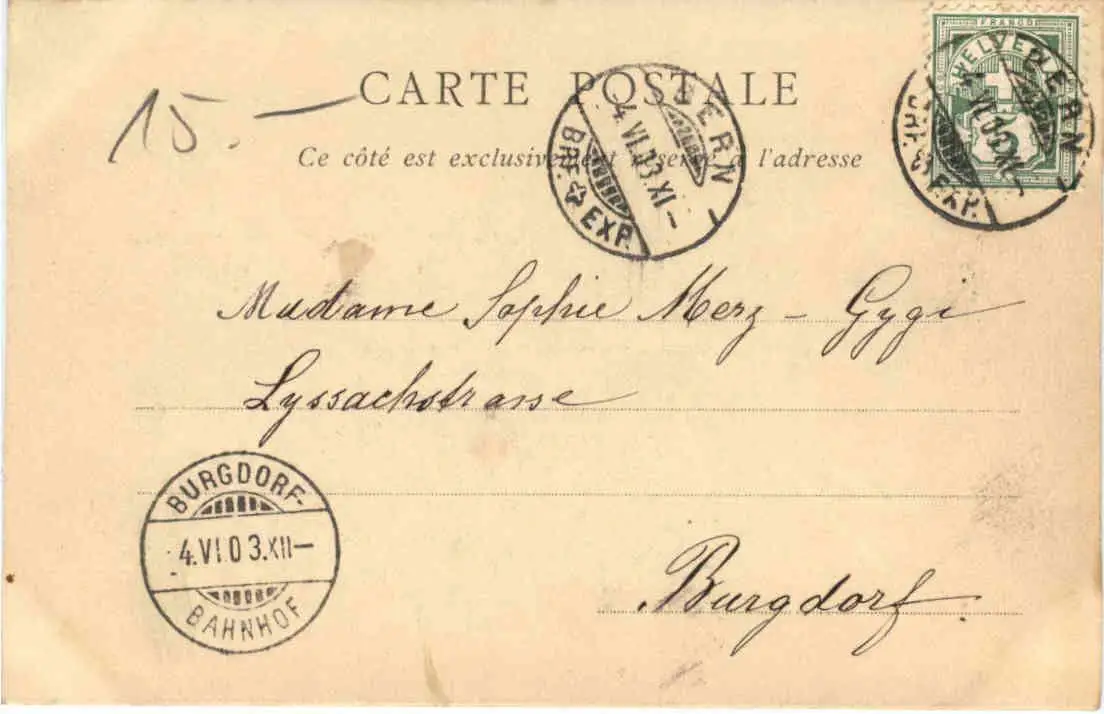 FRANCO
HELVETIA
CARTE POSTALE
15.-
Ce côté est exclusivement réservé à l'adresse
BERN 1
4.VI.03.XI-
BRF. EXP.
BERN 1
4.VI.03.XI-
BRF. EXP.
Madame Sophie Merz - Gygi
Lyssachstrasse
BURGDORF-
4.VI.03.XII-
BAHNHOF
Burgdorf